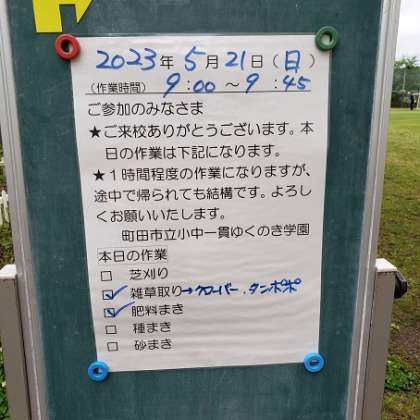 2023年5月21日(日)
(作業時間) 9:00〜9:45
ご参加のみなさま
★ご来校ありがとうございます。本
日の作業は下記になります。
★1時間程度の作業になりますが、
途中で帰られても結構です。よろし
くお願いいたします。
町田市立小中一貫ゆくのき学園
本日の作業
□ 芝刈り
☑ 雑草取り→クローバー、タンポポ
☑ 肥料まき
□ 種まき
□ 砂まき